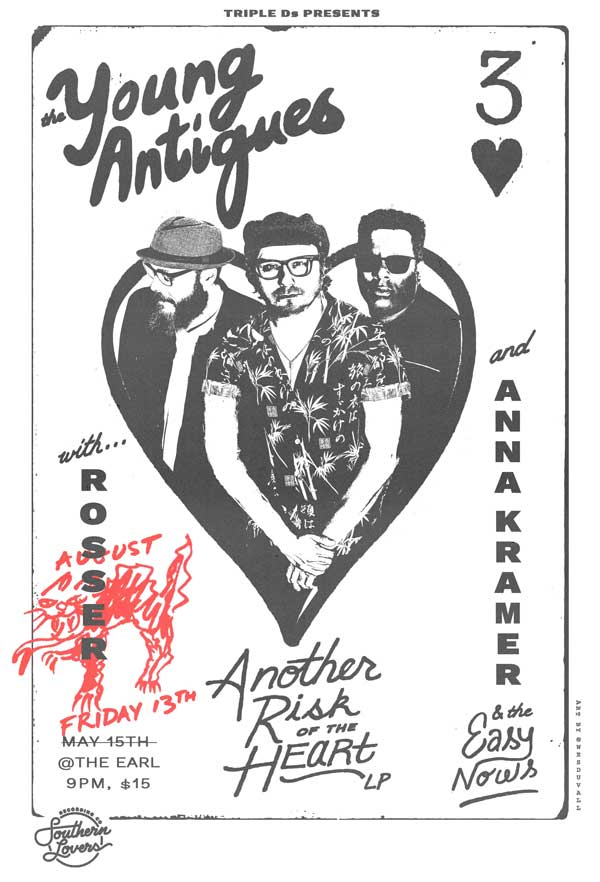 TRIPLE Ds PRESENTS
the Young
Antiques
3
with...
ROSSER
and
ANNA KRAMER
& the
Easy
Nows
AUGUST
FRIDAY 13TH
MAY 15TH
@THE EARL
9PM, $15
Another
Risk
OF THE
HEART
LP
RECORDING CO
Southern
Lovers